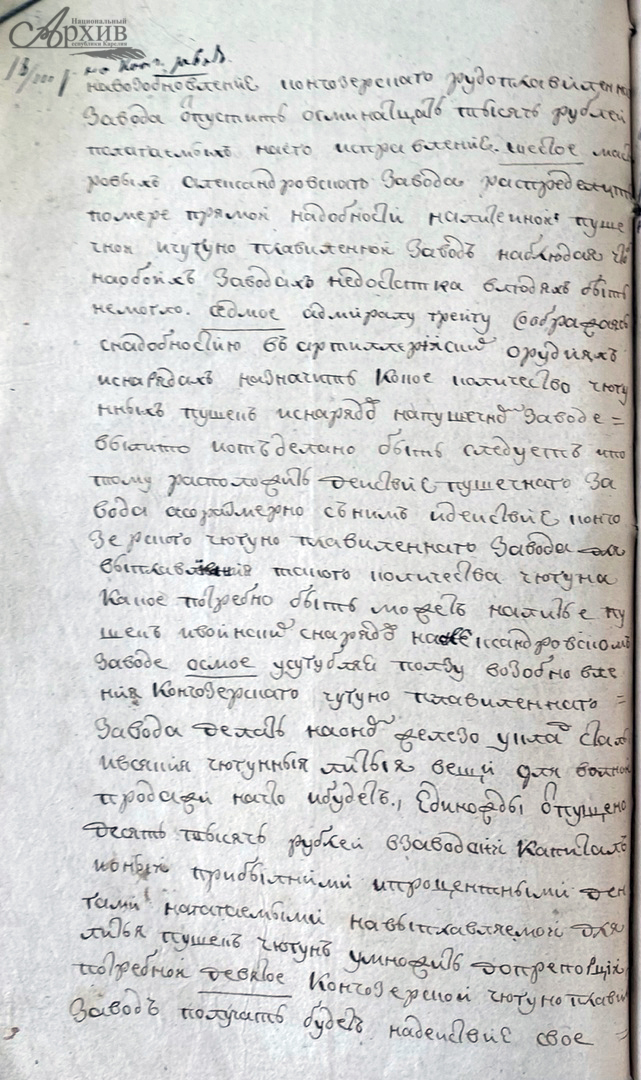 Национальный
Архив
Республики Карелия
18/000
навозобновленiе кончозерскаго рудоплавiленна
Завода отпустить осминатцать тысячь рублей
полагаемыхъ наего исправленiе. шестое мас
ровыхъ александровскаго Завода распределить
помере прямой надобности налитеинои пуше
чнои ичугуно плавиленнои Заводъ наблюдая
наобоихъ Заводахъ недостатка влюдяхъ быть
немогло. седмое адмиралу грейгу Сообразаясь
снадобностiю въ артиллерiйский орудияхъ
иснарядахъ назначить Какое количество чугу
нныхъ пушекъ иснарядо напушечно Заводе =
вылито иотъделано быть следуетъ ипо
тому расположить деиствiе пушечнаго За
вода асоразмерно сънимъ идеиствiе кончо
Зерскаго чугуно плавиленнаго Завода для
выплавления такого количества чугуна
Какое потребно быть можетъ налитье пу
шекъ ивоинский снарядо наалександровскомъ
Заводе осмое усугубляя ползу возобновле
ния Кончозерскаго чугуно плавиленнаго =
Завода делать наоно железо укла стал
ивсякия чугунныя литыя вещи для волнои
продажи начто ибудетъ, Единожды отпущено
десять тысячь рублей взаводский Капиталъ
коный прибылними ипроцентными ден
гами нагагаемыми навыплавляемой для
литья пушекъ чугунъ умножить допропорцiи
потребнои девятое Кончозерской чугуноплави
Заводъ получать будетъ надеиствiе свое =